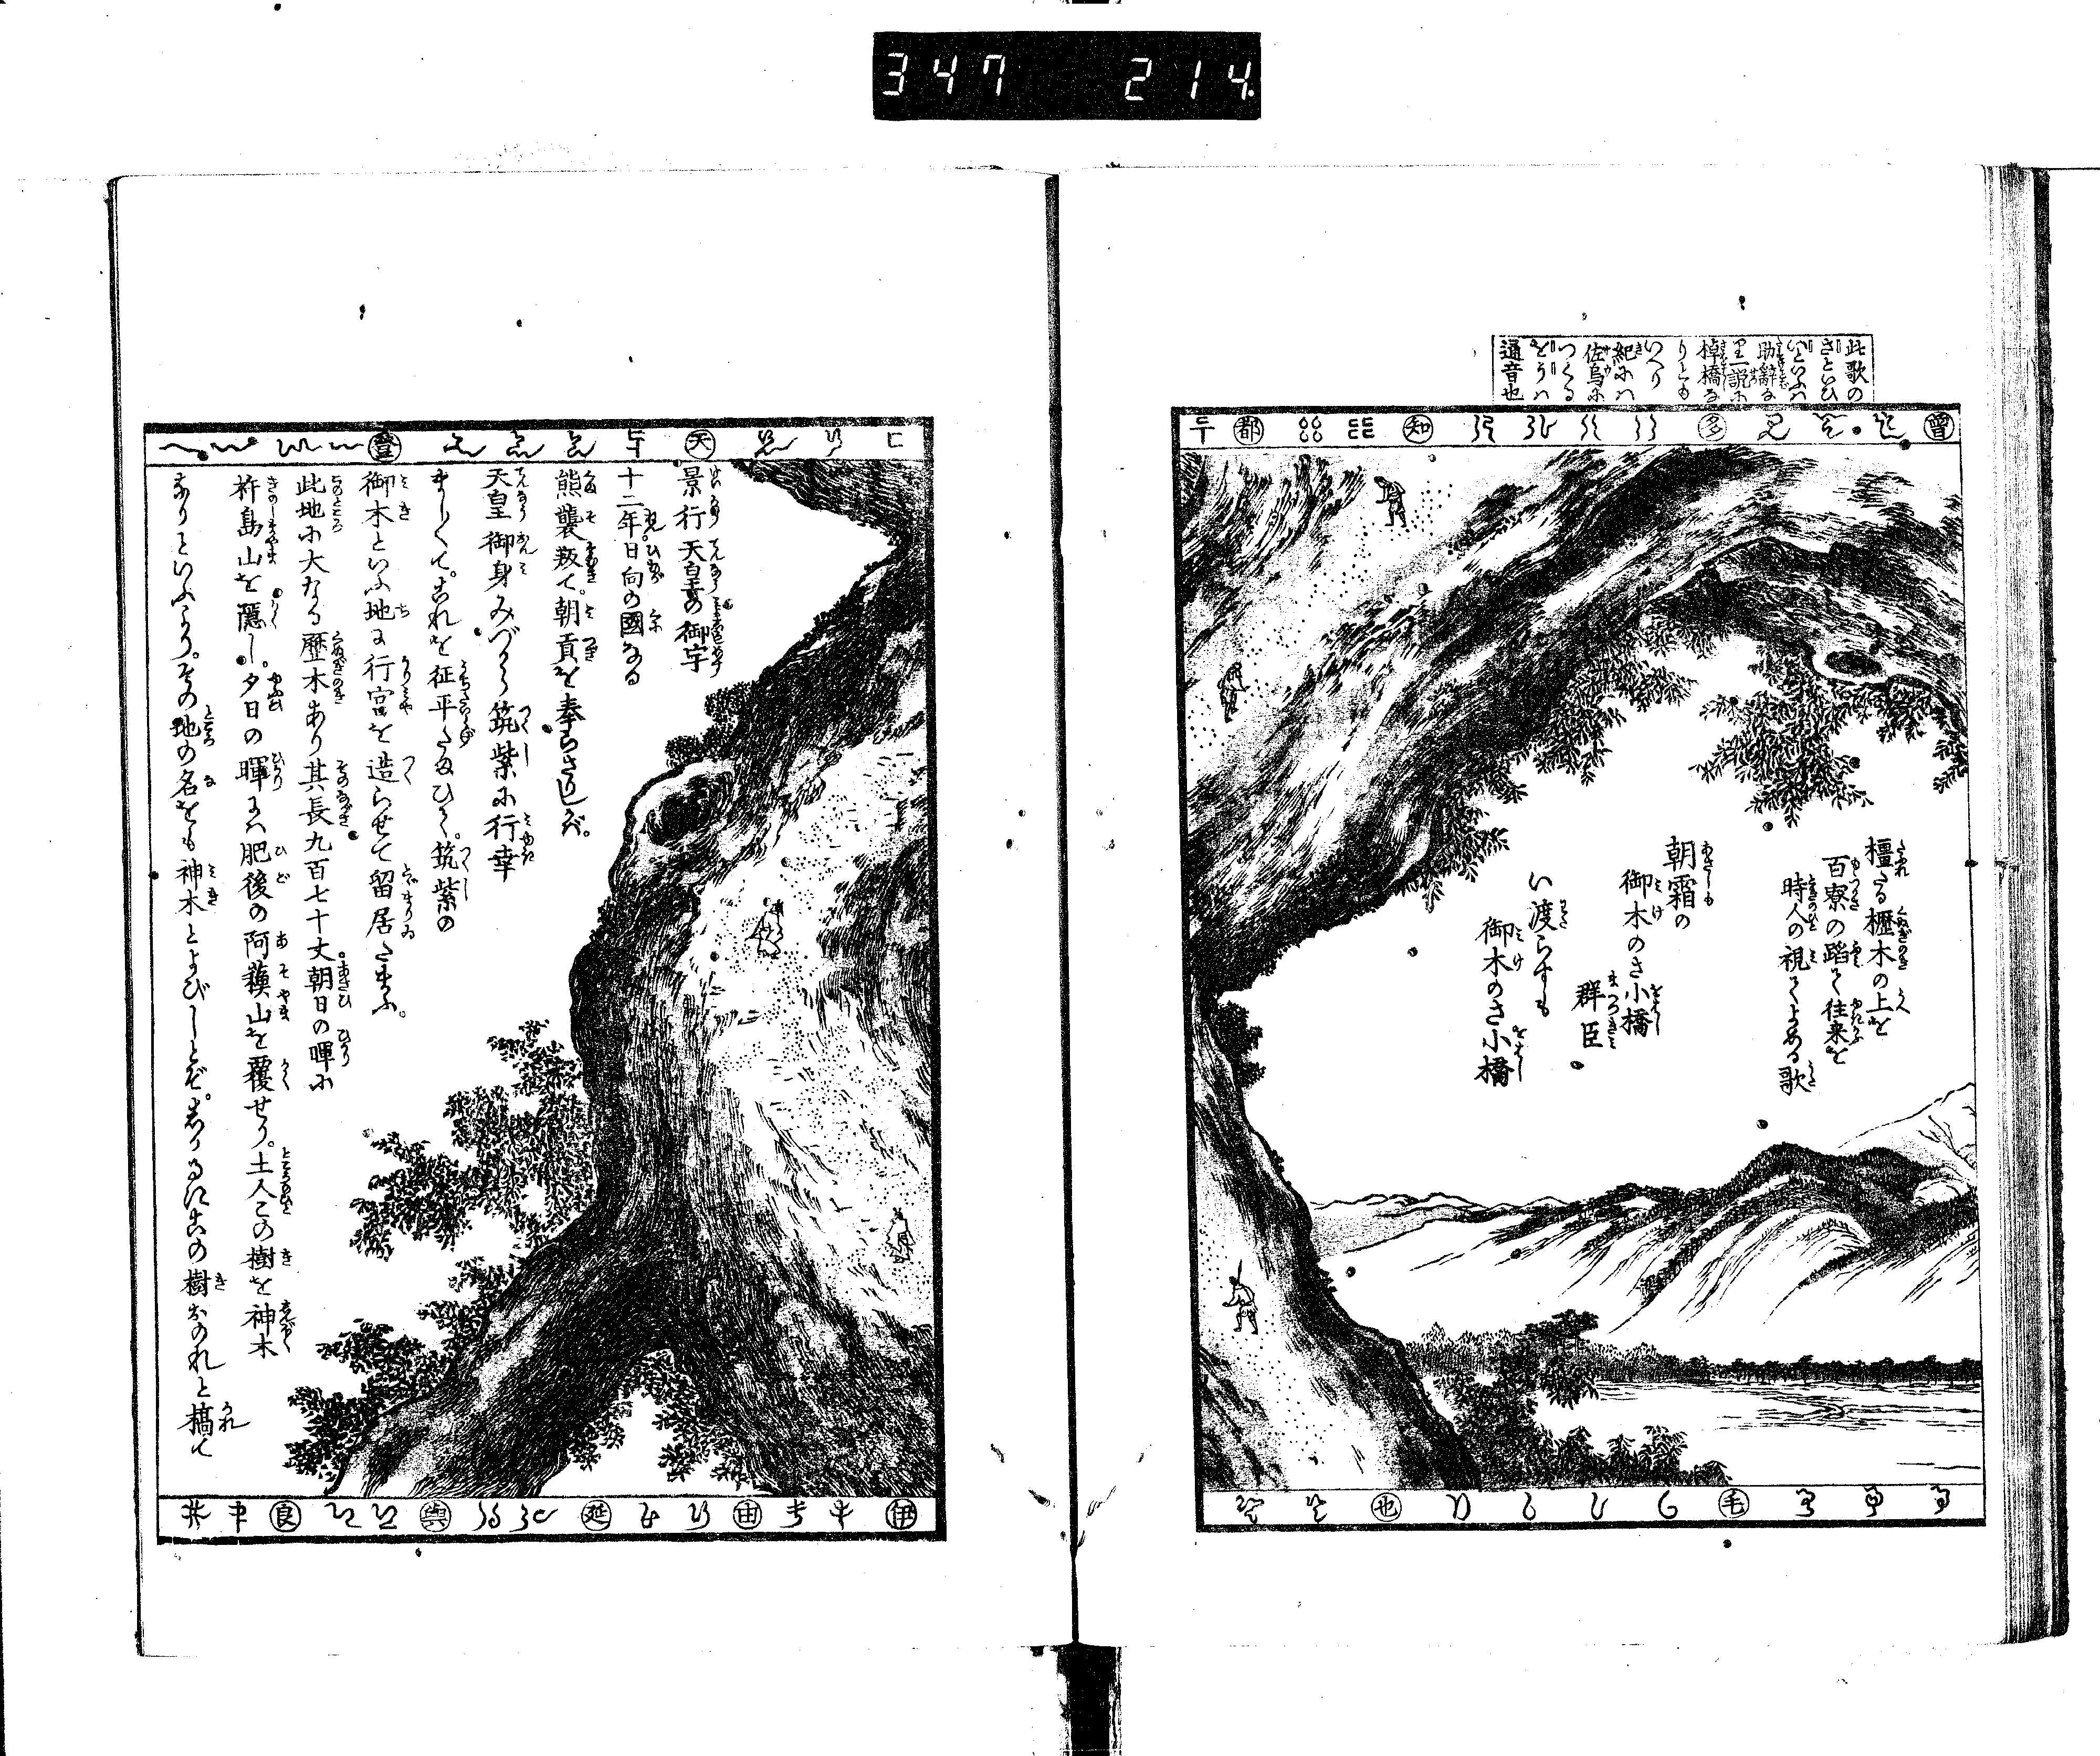 347 214
此歌の
さといひ
いといふハ
助辭な
里一説に
棹橋な
りとも
いへり
紀にハ
佐烏に
つくる
をうハ
通音也
曽 多 知 都
橿たる櫪木の上を
百寮の蹈て往来を
時人の視てよめる歌
朝霜の
御木のさ小橋
群臣
い渡らすも
御木のさ小橋
毛 也
天 登
景行天皇の御宇
十二年。日向の國なる
熊襲叛て。朝貢を奉らさりしバ。
天皇御身みづから筑紫に行幸
まし〳〵て。これを征平たまひて。筑紫の
御木といふ地に行宮を造らせて留居たまふ。
此地に大なる歴木あり其長九百七十丈。朝日の暉に
杵島山を隱し。夕日の暉にハ肥後の阿蘓山を覆せり。土人この樹を神木
なりといふより。その地の名をも神木とよびしとぞ。しかるにこの樹おのれと槁て
伊 由 延 與 良